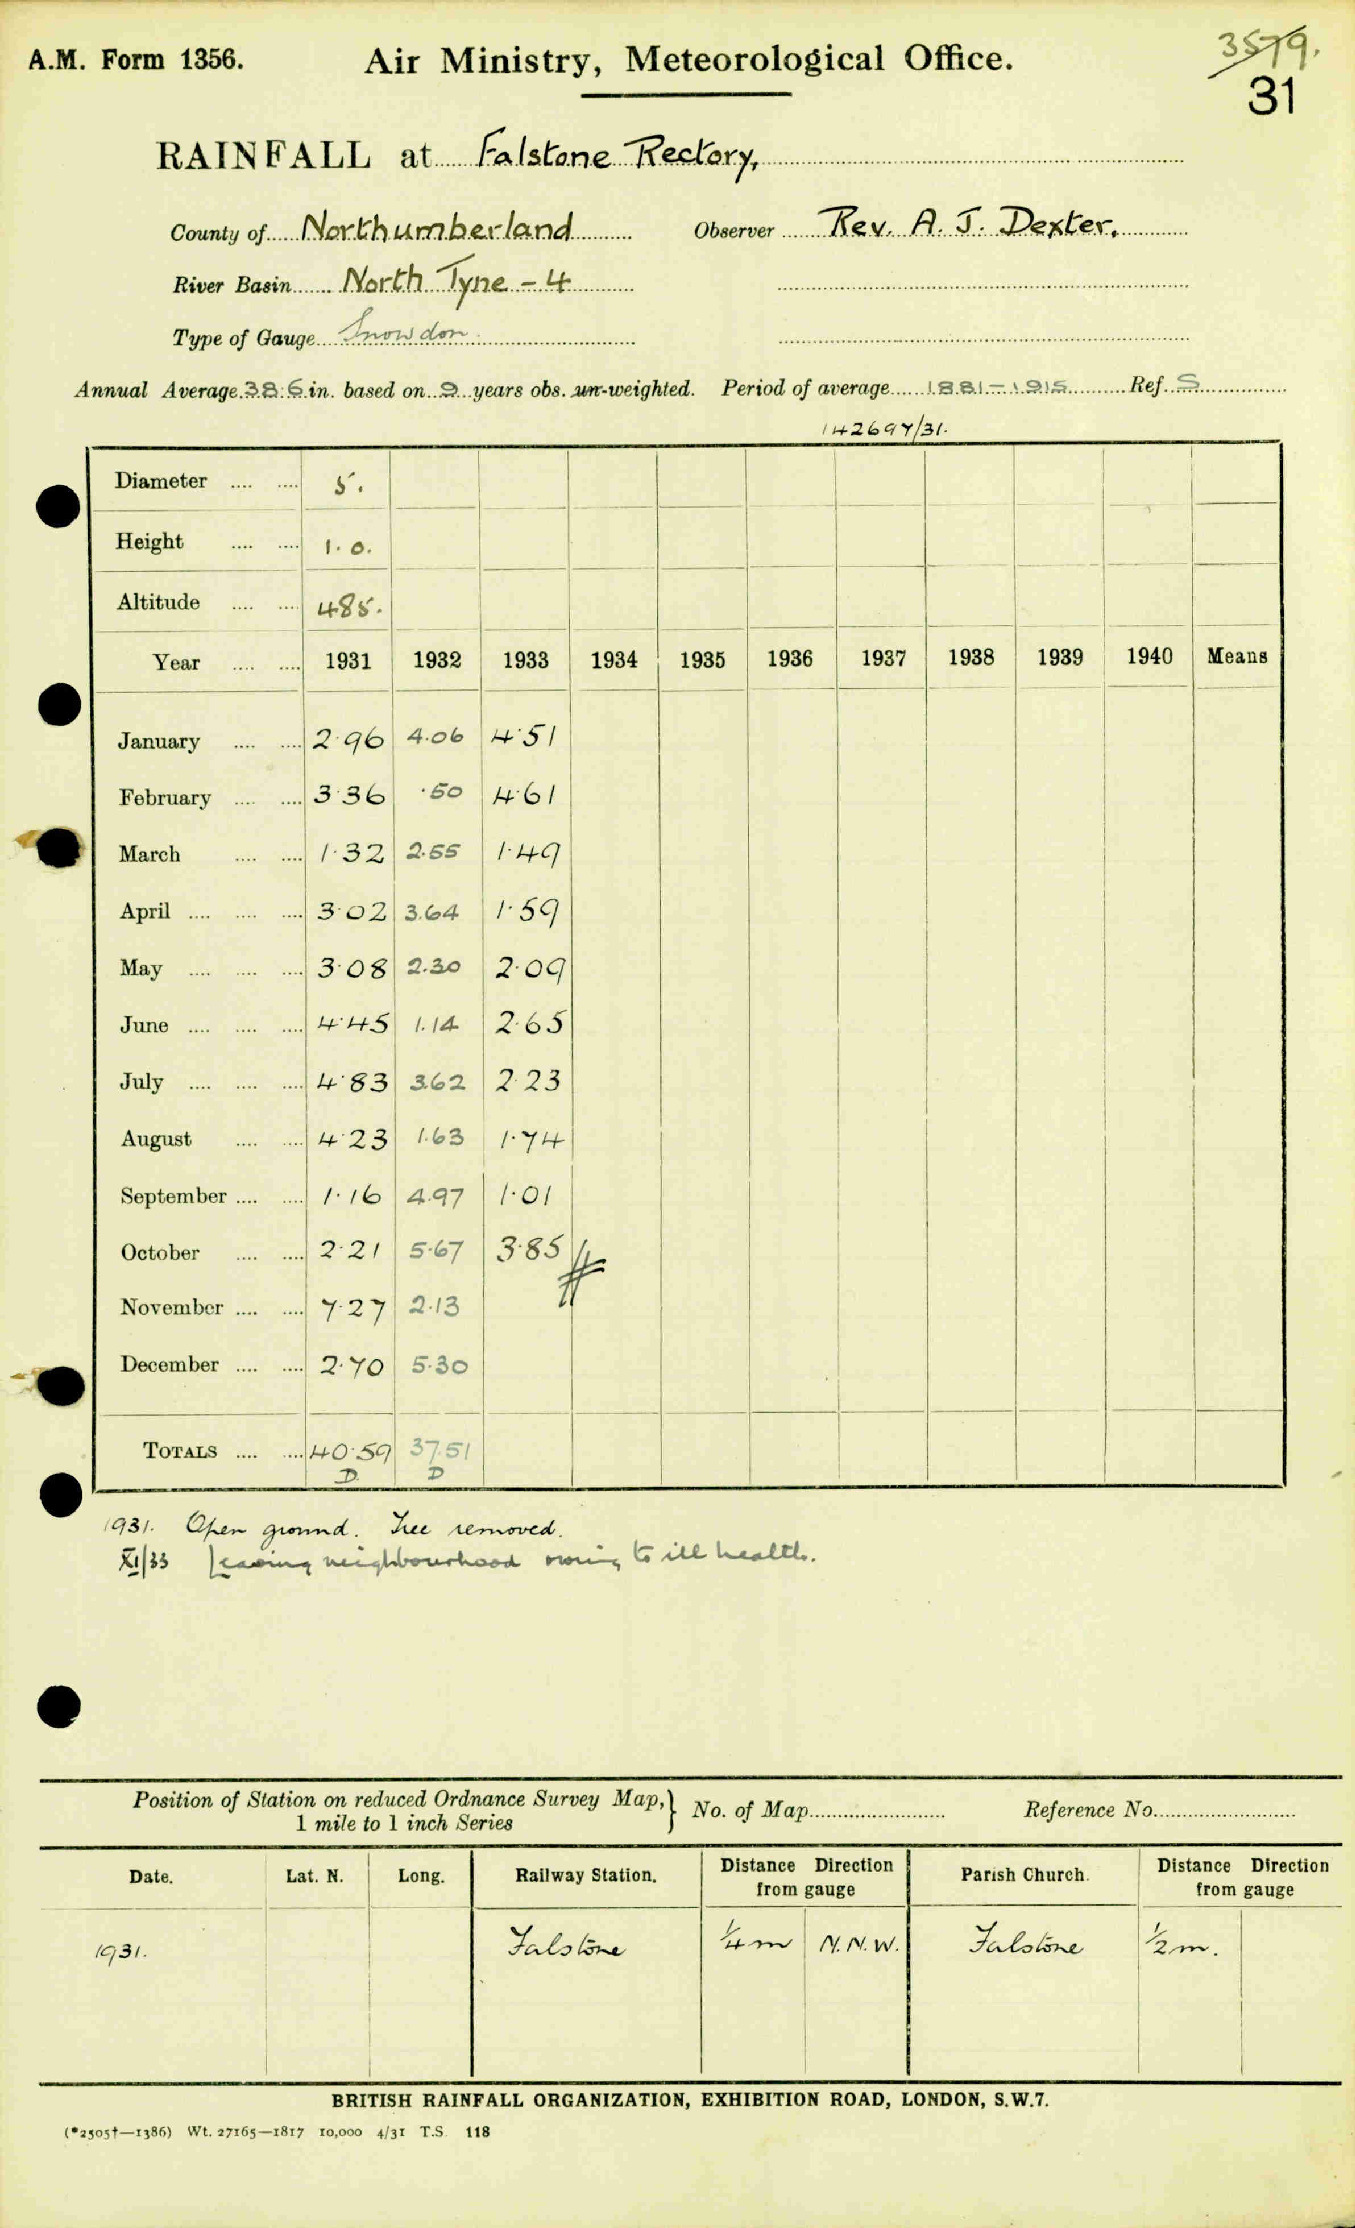 A.M. Form 1356. Air Ministry, Meteorological Office. 3579.
31
RAINFALL at Falstone Rectory,
County of Northumberland Observer Rev. A. J. Dexter.
River Basin North Tyne - 4
Type of Gauge Snowdon
Annual Average 38.6 in. based on 9 years obs. un-weighted. Period of average 1881-1915 Ref. S
142697/31.
Diameter 5.
Height 1.0.
Altitude 485.
Year 1931 1932 1933 1934 1935 1936 1937 1938 1939 1940 Means
January 2.96 4.06 4.51
February 3.36 .50 4.61
March 1.32 2.55 1.49
April 3.02 3.64 1.59
May 3.08 2.30 2.09
June 4.45 1.14 2.65
July 4.83 3.62 2.23
August 4.23 1.63 1.74
September 1.16 4.97 1.01
October 2.21 5.67 3.85
November 7.27 2.13
December 2.70 5.30
TOTALS 40.59 37.51
D D
1931. Open ground. Tree removed.
XI/33 Leaving neighbourhood owing to ill health.
Position of Station on reduced Ordnance Survey Map, } No. of Map Reference No.
1 mile to 1 inch Series
Date. Lat. N. Long. Railway Station. Distance Direction from gauge Parish Church. Distance Direction from gauge
1931. Falstone 1/4 m N.N.W. Falstone 1/2 m.
BRITISH RAINFALL ORGANIZATION, EXHIBITION ROAD, LONDON, S.W.7.
(*2505†—1386) Wt. 27165—1817 10,000 4/31 T.S. 118